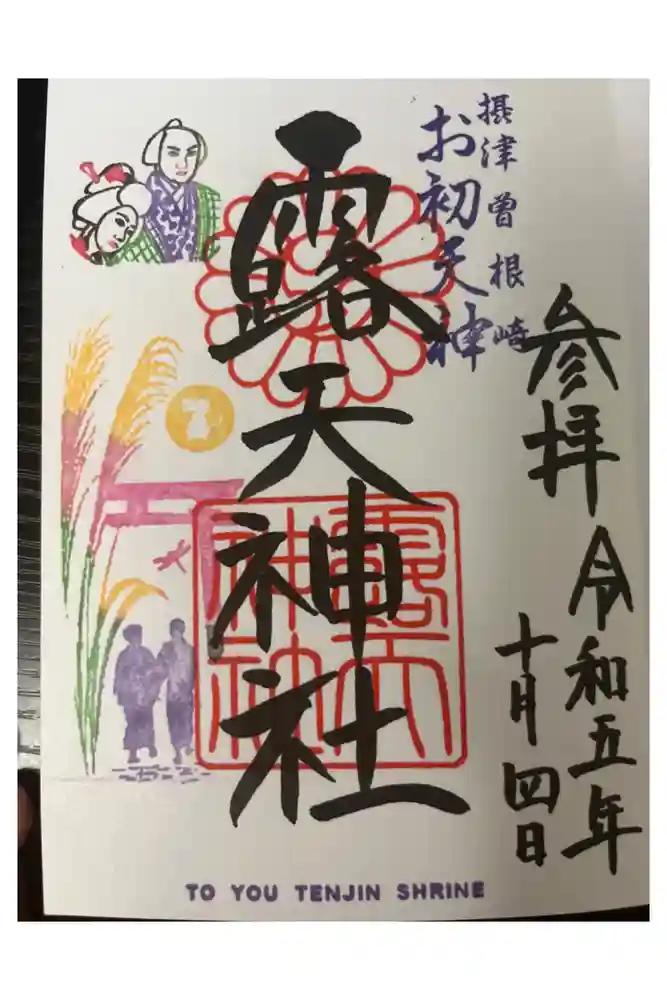 参拝
令和五年
十月四日
摂津 曽根崎
お初天神
露天神社
露天
神社
TO YOU TENJIN SHRINE